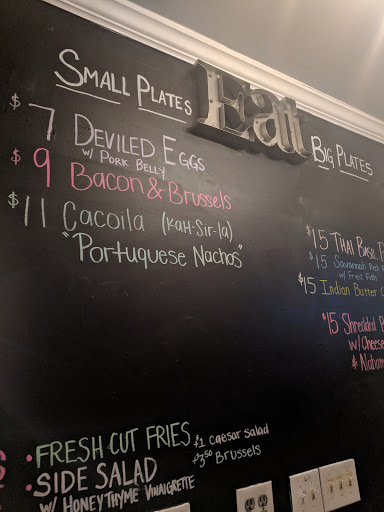 SMALL PLATES
$7 DEVILED EGGS
W/ PORK BELLY
$9 Bacon & Brussels
$11 Cacoila (Kah-Sir-la)
"Portuguese Nachos"
Eat
BIG PLATES
$15 THAI BASIL
$15 Savannah Red
w/ Fried Fish
$15 Indian Butter
$15 Shredded
w/ Cheese
&
• FRESH CUT FRIES
• SIDE SALAD
W/ HONEY THYME VINAIGRETTE
+$1 caesar salad
+$3.50 Brussels